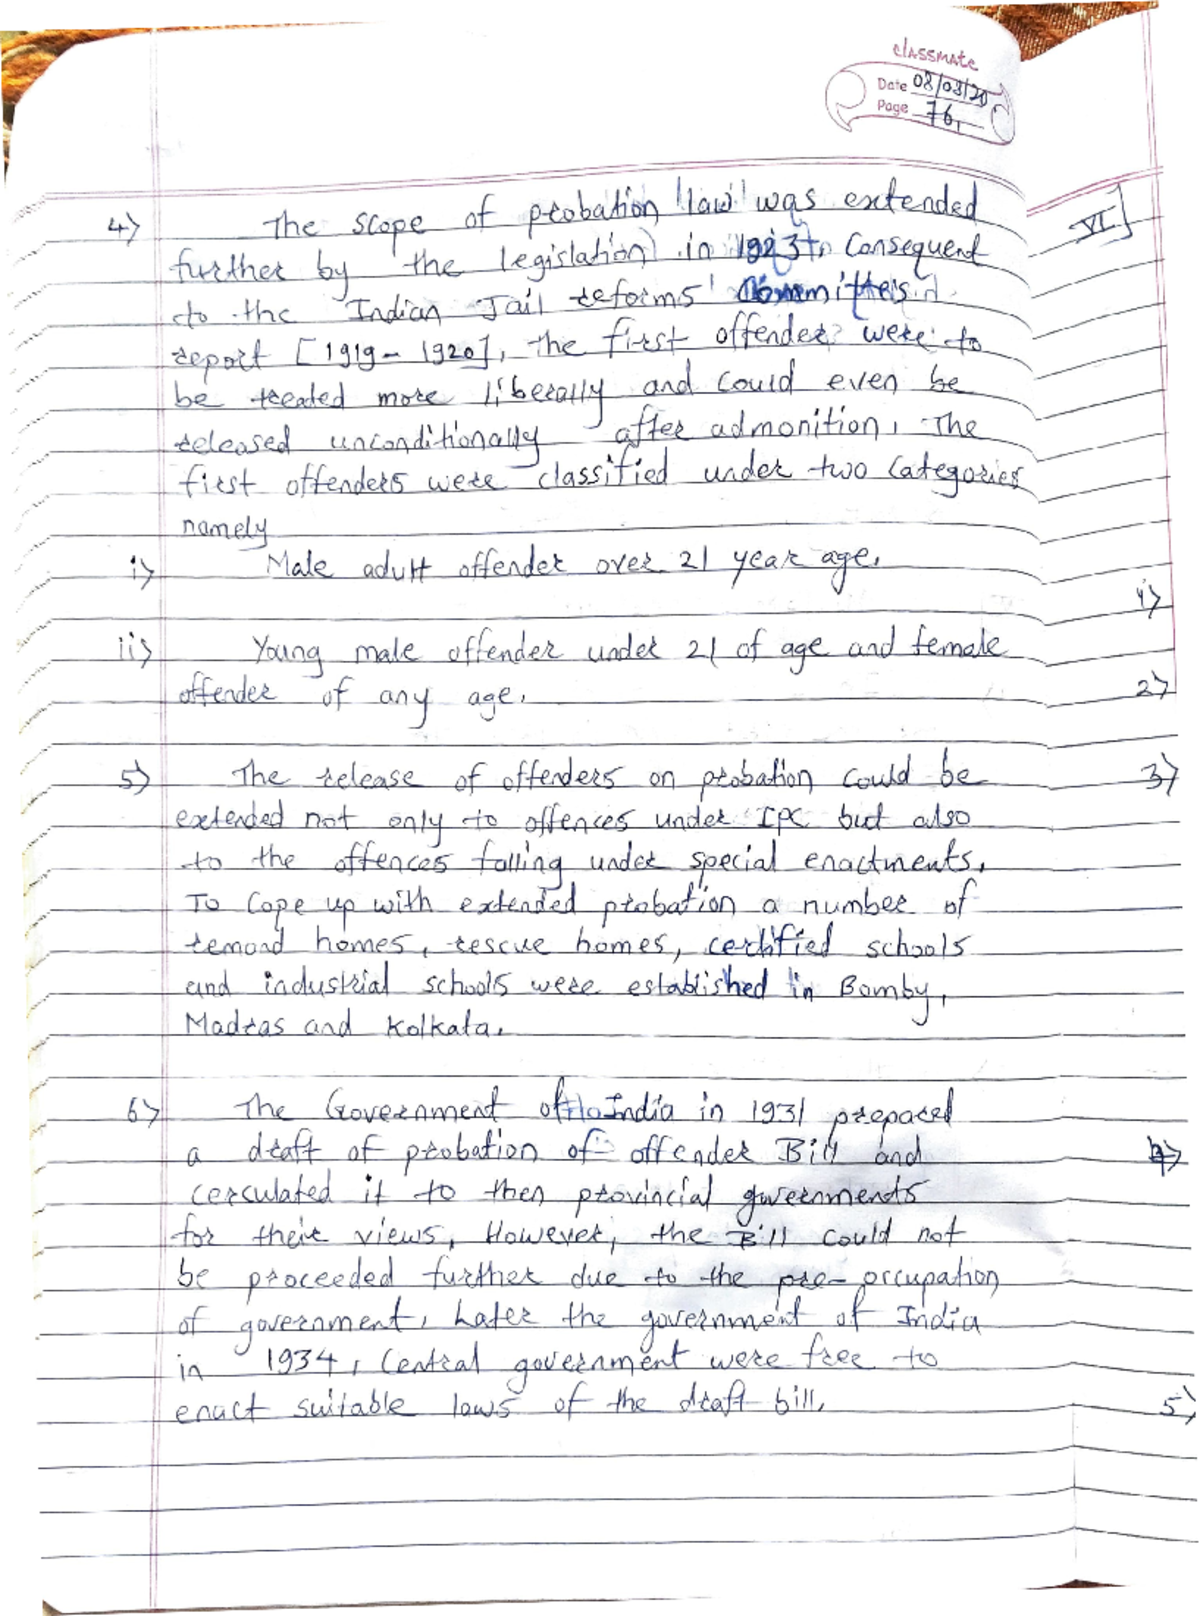 classmate
Date 08/03/20
Page 76,
4> The scope of probation law was extended
further by the legislation in 1923 In Consequent
to the Indian Jail reforms Committeis
report [1919 - 1920], The first offender were to
be treated more liberally and could even be
released unconditionally after admonition, The
first offenders were classified under two Categories
namely
i> Male adult offender over 21 year age.
ii> Young male offender under 21 of age and female
offender of any age.
5> The release of offenders on probation could be
extended not only to offences under IPC but also
to the offences falling under special enactments.
To Cope up with extended probation a number of
remand homes, rescue homes, certified schools
and industrial schools were established in Bomby,
Madras and Kolkata.
6> The Government of India in 1931 prepared
a draft of probation of offender Bill and
cerculated it to then provincial governments
for their views, However, the Bill could not
be proceeded further due to the pre-occupation
of government, Later the government of India
in 1934, Central government were free to
enact suitable laws of the draft bill,
VI]
1>
2>
3>
4>
5>